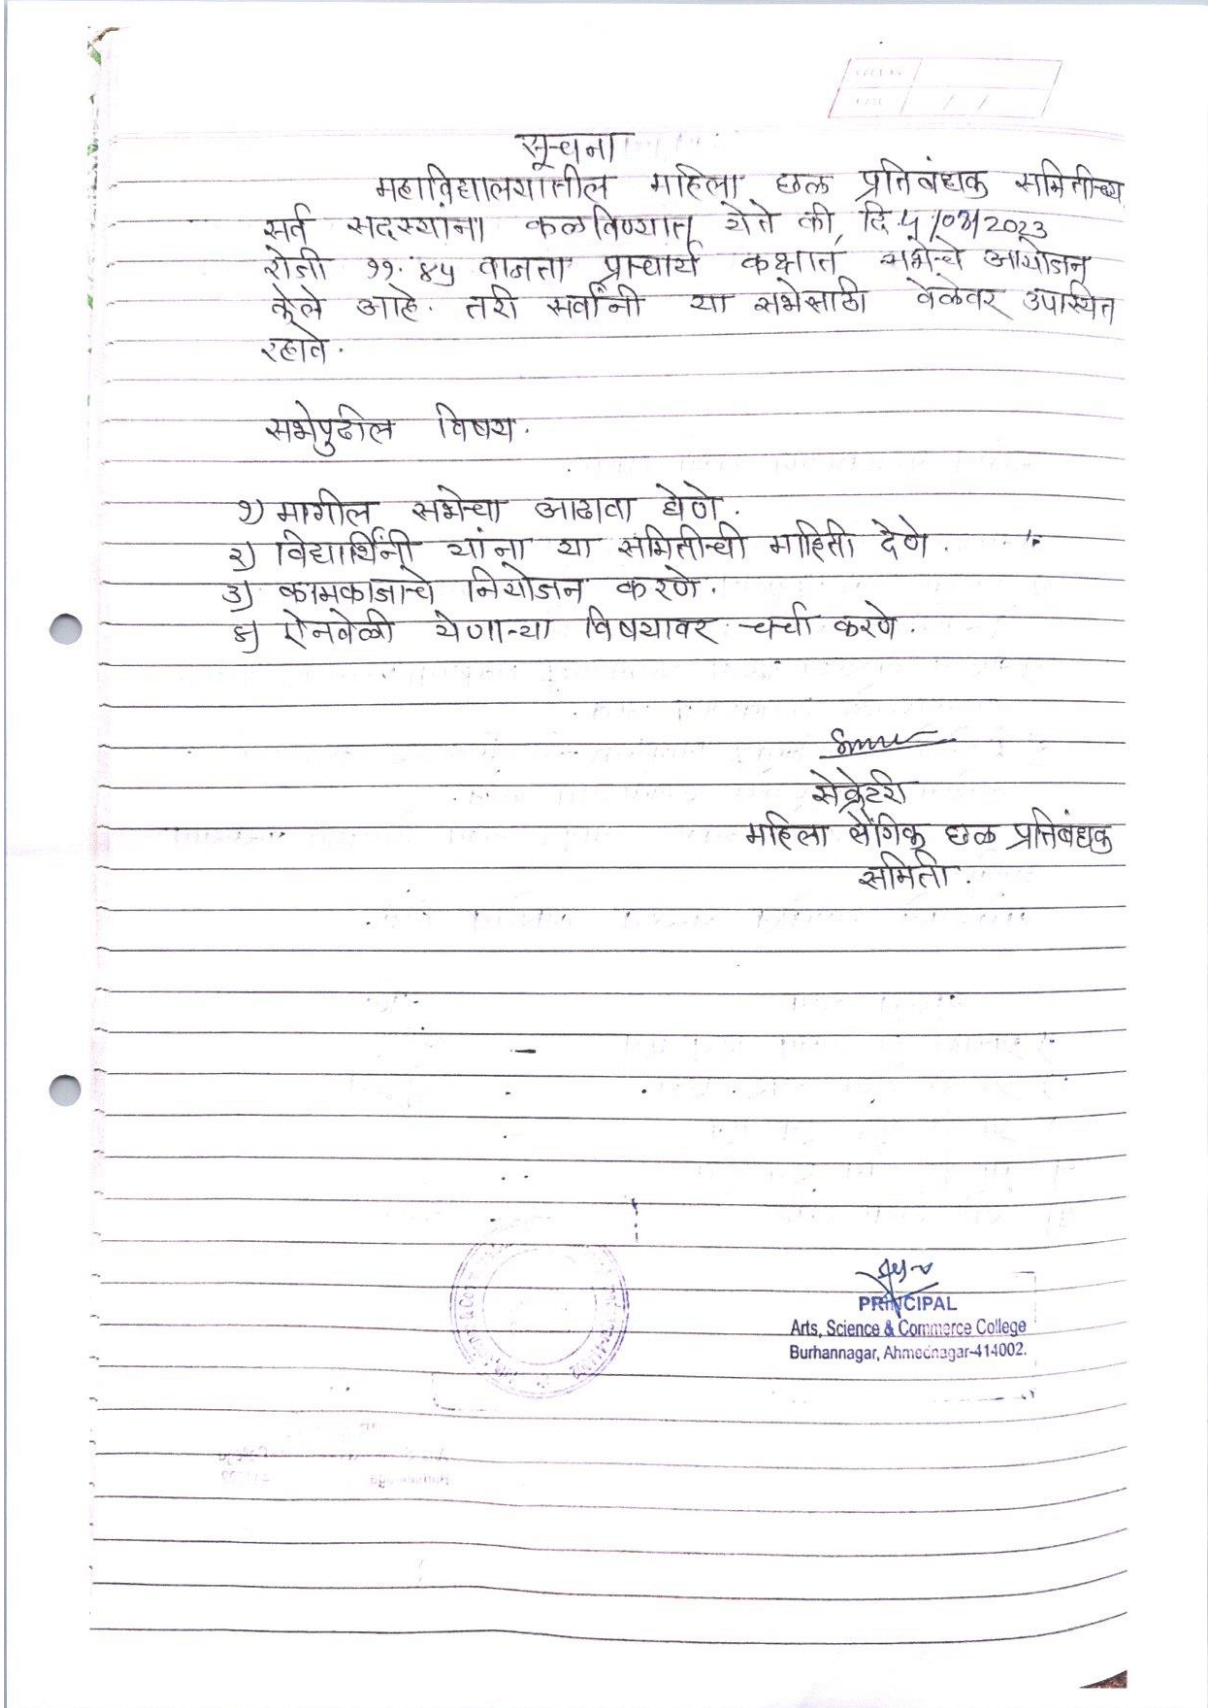 सूचना
महाविद्यालयातील महिला छळ प्रतिबंधक समितीच्या
सर्व सदस्यांना कळविण्यात येते की, दि. ५/०३/2023
रोजी ११.४५ वाजता प्राचार्य कक्षात सभेचे आयोजन
केले आहे. तरी सर्वांनी या सभेसाठी वेळेवर उपस्थित
रहावे.
सभेपुढील विषय.
१) मागील सभेचा आढावा घेणे.
२) विद्यार्थिनी यांना या समितीची माहिती देणे.
३) कामकाजाचे नियोजन करणे.
४) ऐनवेळी येणाऱ्या विषयावर चर्चा करणे.
सेक्रेटरी
महिला लैंगिक छळ प्रतिबंधक
समिती.
PRINCIPAL
Arts, Science & Commerce College
Burhannagar, Ahmednagar-414002.